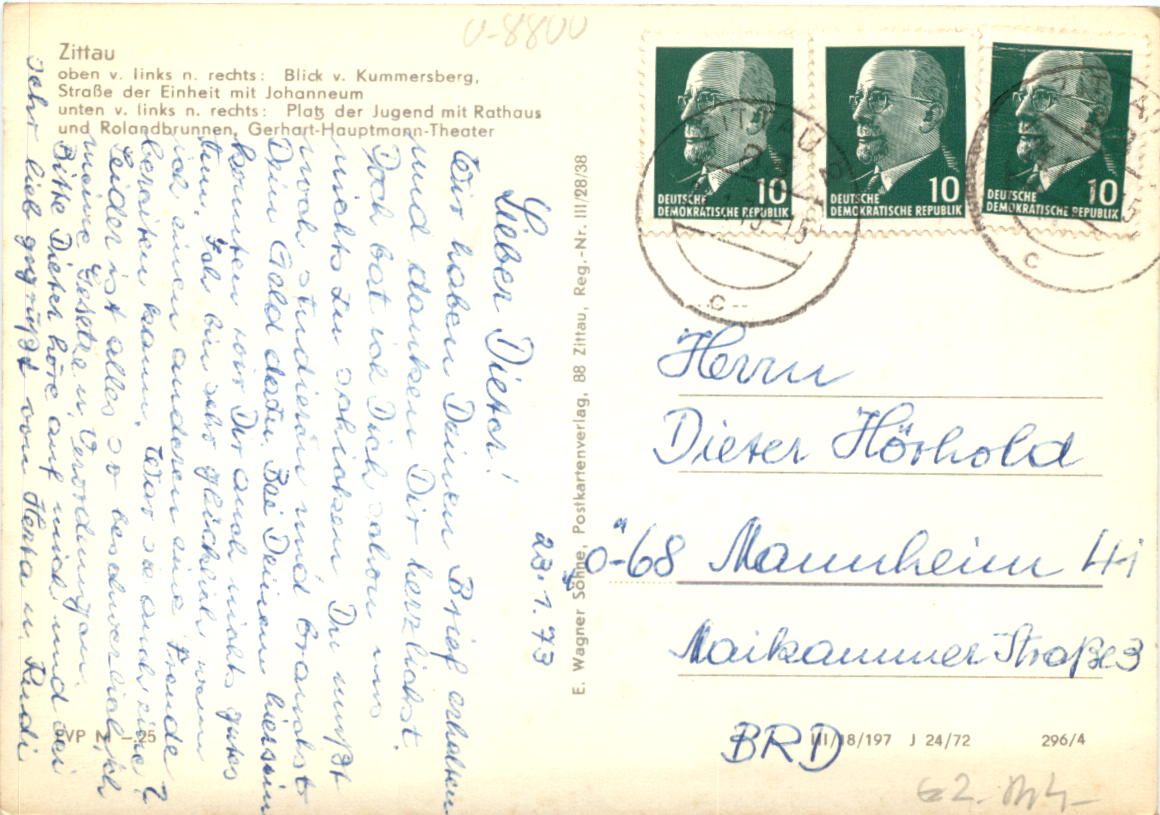 U-8800
Zittau
oben v. links n. rechts: Blick v. Kummersberg,
Straße der Einheit mit Johanneum
unten v. links n. rechts: Platz der Jugend mit Rathaus
und Rolandbrunnen, Gerhart-Hauptmann-Theater
23.1.73
Lieber Dieter!
Wir haben Deinen Brief erhalten
und danken Dir herzlichst.
Doch bat ich Dich schon uns
nichts zu schicken. Du mußt
noch studieren und brauchst
Dein Geld dazu. Bei Deinem hiersein
konnten wir Dir auch nichts gutes
tun. Ich bin sehr glücklich wenn
ich einen anderen eine Freude
bereiten kann. War es auch eine?
Leider ist alles so beschwerlich
meine Gesetze u. Verordnungen.
Bitte Dieter höre auf mich und sei
sehr lieb gegrüßt von Herta u. Rudi
EVP M -.25
E. Wagner Söhne, Postkartenverlag, 88 Zittau, Reg.-Nr. III/28/38
DEUTSCHE
DEMOKRATISCHE REPUBLIK
10
DEUTSCHE
DEMOKRATISCHE REPUBLIK
10
DEUTSCHE
DEMOKRATISCHE REPUBLIK
10
ZITTAU
C
C
Herrn
Dieter Hörhold
68 Mannheim 41
Maikammer Straße 3
BRD
III/18/197 J 24/72 296/4